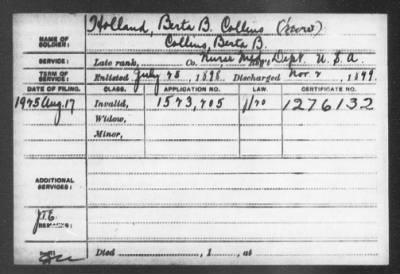 Holland, Berta B. Collins (now)
NAME OF SOLDIER: Collins, Berta B.
SERVICE: Late rank, Co. Nurse Med. Dept. U.S.A.
TERM OF SERVICE: Enlisted July 25, 1898. Discharged Nov. 2, 1899.
DATE OF FILING. CLASS. APPLICATION NO. LAW. CERTIFICATE NO.
1925 Aug. 17 Invalid, 1573,705 1276132
Widow,
Minor,
ADDITIONAL SERVICES:
REMARKS:
Died , 1 , at